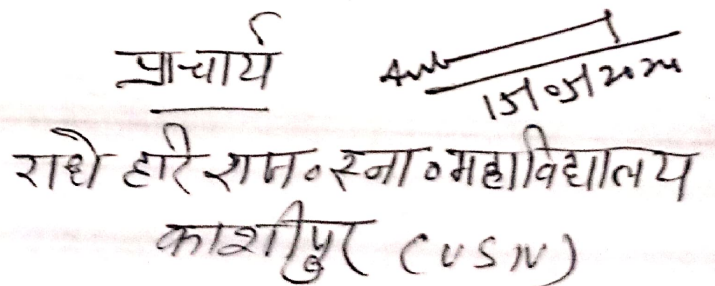 प्राचार्य
15/05/2024
राधे हरि राज० स्ना० महाविद्यालय
काशीपुर (USN)